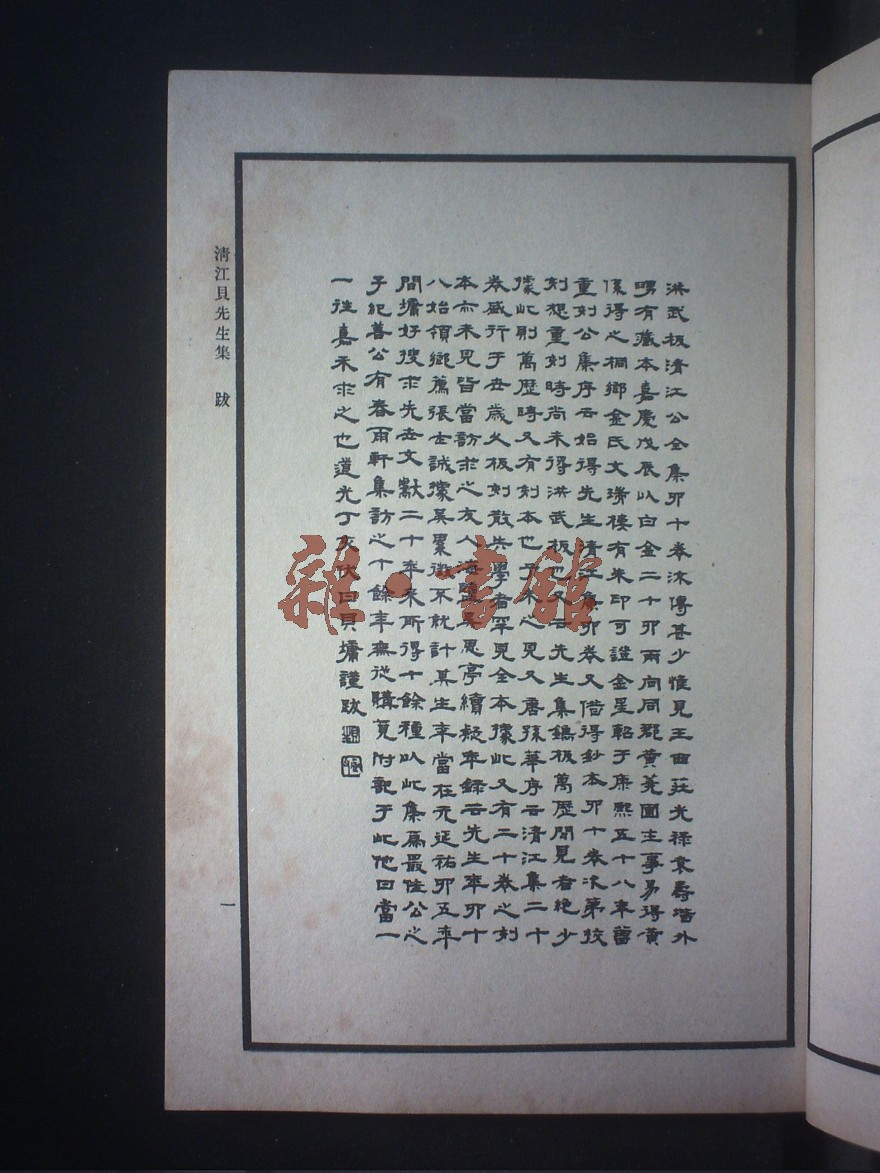 洪武板清江公全集四十卷流傳甚少惟見王西莊光祿袁壽堦外
甥有藏本嘉慶戊辰以白金二十四兩向同郡黃蕘圃主事易得黃
係得之桐鄉金氏文瑞樓有朱印可證金星軺于康熙五十八年舊
重刻公集序云始得先生清江集四卷又借得鈔本四十卷次第校
刻想重刻時尚未得洪武板也又云先生集鐫板萬歷間見者絕少
據此則萬歷時又有刻本也予未之見又唐孫華序云清江集二十
卷盛行于世歲久板刻散失學者罕見全本據此又有二十卷之刻
本亦未見皆當訪求之友人海鹽吳思亭續疑年錄云先生年四十
八始領鄉薦張士誠據吳累徵不就計其生年當在元延祐四五年
間墉好搜求先世文獻二十年來所得十餘種以此集為最佳公之
子紀善公有春雨軒集訪之十餘年無從購覓附記于此他日當一
一往嘉禾求之也道光丁亥伏日貝墉謹跋
清江貝先生集 跋
一
雜·書館